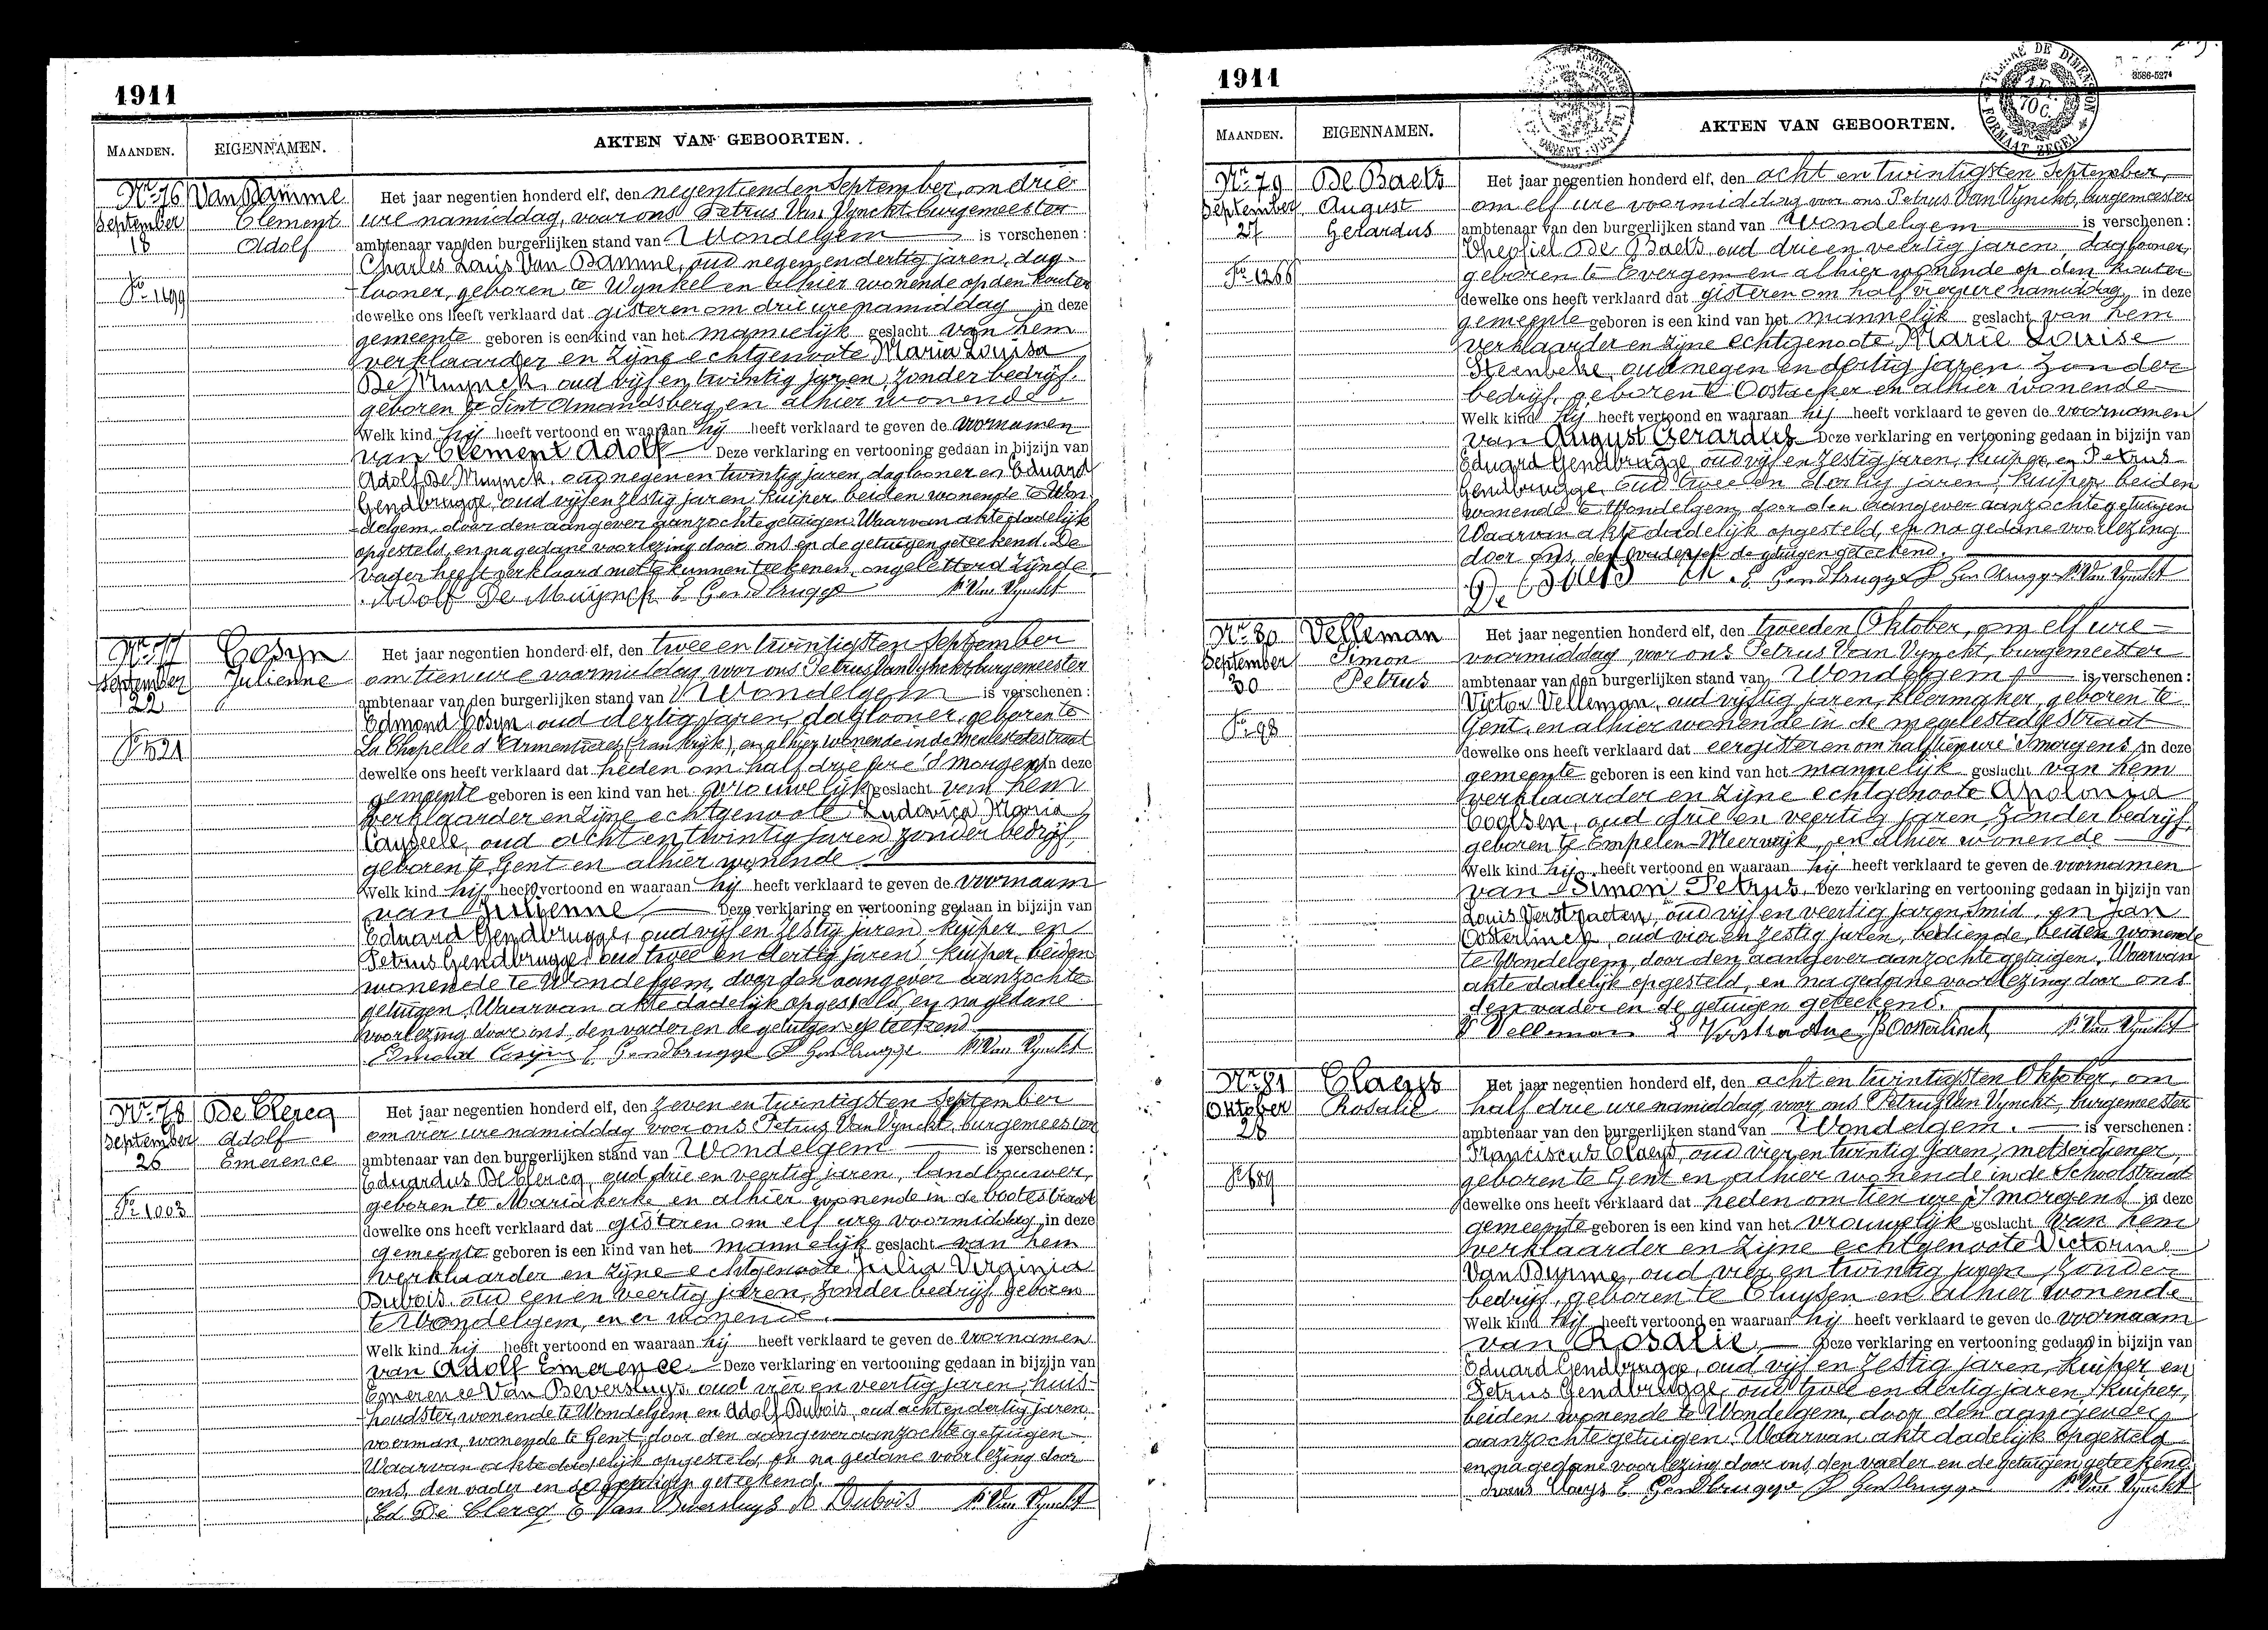 1911
MAANDEN.
EIGENNAMEN.
AKTEN VAN GEBOORTEN.
Nr 76
September
18
Fo 1499
Van Damme
Clement
Adolf
Het jaar negentien honderd elf, den negentienden September, om drie
ure namiddag, voor ons Petrus Van Vynckt burgemeester
ambtenaar van den burgerlijken stand van Wondelgem is verschenen :
Charles Louis Van Damme, oud negen en dertig jaren, dag-
looner, geboren te Wynkel en alhier wonende op den Kouter
dewelke ons heeft verklaard dat gisteren om drie ure namiddag in deze
gemeente geboren is een kind van het mannelijk geslacht van hem
verklaarder en zijne echtgenoote Maria Louisa
De Muynck, oud vijf en twintig jaren, zonder bedrijf,
geboren te Sint Amandsberg en alhier wonende.
Welk kind hij heeft vertoond en waaraan hij heeft verklaard te geven de voornamen
van Clement Adolf Deze verklaring en vertooning gedaan in bijzijn van
Adolf De Muynck, oud negen en twintig jaren, daglooner en Eduard
Gendbrugge, oud vijf en zestig jaren, kuiper, beiden wonende te Won-
delgem, door den aangever aanzochte getuigen. Waarvan akte dadelijk
opgesteld, en na gedane voorlezing door ons en de getuigen geteekend. De
vader heeft verklaard niet te kunnen teekenen, ongeletterd zijnde.
Adolf De Muijnck E Gendbrugge P. Van Vynckt
Nr 77
September
22
Fo 521
Cosyn
Julienne
Het jaar negentien honderd elf, den twee en twintigsten September
om tien ure voormiddag voor ons Petrus Van Vynckt burgemeester
ambtenaar van den burgerlijken stand van Wondelgem is verschenen :
Edmond Cosyn, oud dertig jaren, daglooner, geboren te
La Chapelle d'Armentières (Frankrijk), en alhier wonende in de Meulestedestraat
dewelke ons heeft verklaard dat heden om half drie ure 's morgens in deze
gemeente geboren is een kind van het vrouwelijk geslacht van hem
verklaarder en zijne echtgenoote Ludovica Maria
Cayseele, oud acht en twintig jaren zonder bedrijf,
geboren te Gent en alhier wonende
Welk kind hij heeft vertoond en waaraan hij heeft verklaard te geven de voornaam
van Julienne, Deze verklaring en vertooning gedaan in bijzijn van
Eduard Gendbrugge, oud vijf en zestig jaren kuiper en
Petrus Gendbrugge oud twee en dertig jaren kuiper, beiden
wonende te Wondelgem, door den aangever aanzochte
getuigen. Waarvan akte dadelijk opgesteld, en na gedane
voorlezing door ons, den vader en de getuigen geteekend.
Edmond Cosijn E Gendbrugge P Gendbrugge P. Van Vynckt
Nr 78
September
26
Fo 1003
De Clercq
Adolf
Emerence
Het jaar negentien honderd elf, den zeven en twintigsten September
om vier ure namiddag voor ons Petrus Van Vynckt, burgemeester
ambtenaar van den burgerlijken stand van Wondelgem is verschenen :
Eduardus De Clercq, oud drie en veertig jaren, landbouwer,
geboren te Mariakerke en alhier wonende in de bootestraat
dewelke ons heeft verklaard dat gisteren om elf ure voormiddag in deze
gemeente geboren is een kind van het mannelijk geslacht van hem
verklaarder en zijne echtgenoote Julia Virginia
Dubois, oud een en veertig jaren, zonder bedrijf geboren
te Wondelgem, en er wonende.
Welk kind hij heeft vertoond en waaraan hij heeft verklaard te geven de voornamen
van Adolf Emerence. Deze verklaring en vertooning gedaan in bijzijn van
Emerence Van Beversluys, oud vier en veertig jaren, huis-
houdster, wonende te Wondelgem en Adolf Dubois, oud acht en dertig jaren,
voerman, wonende te Gent, door den aangever aanzochte getuigen
Waarvan akte dadelijk opgesteld, en na gedane voorlezing door
ons, den vader en de getuigen geteekend.
Ed De Clercq E Van Beversluys A Dubois P. Van Vynckt
1911
8586-5274
MAANDEN.
EIGENNAMEN.
AKTEN VAN GEBOORTEN.
Nr 79
September
27
Fo 1266
De Baets
August
Gerardus
Het jaar negentien honderd elf, den acht en twintigsten September,
om elf ure voormiddag voor ons Petrus Van Vynckt, burgemeester
ambtenaar van den burgerlijken stand van Wondelgem is verschenen :
Theofiel De Baets, oud drie en veertig jaren, daglooner,
geboren te Evergem en alhier wonende op den Kouter
dewelke ons heeft verklaard dat gisteren om half vier ure namiddag in deze
gemeente geboren is een kind van het mannelijk geslacht van hem
verklaarder en zijne echtgenoote Marie Louise
Steenbeke, oud negen en dertig jaren zonder
bedrijf, geboren te Oostacker en alhier wonende
Welk kind hij heeft vertoond en waaraan hij heeft verklaard te geven de voornamen
van August Gerardus Deze verklaring en vertooning gedaan in bijzijn van
Eduard Gendbrugge, oud vijf en zestig jaren, kuiper, en Petrus
Gendbrugge, oud twee en dertig jaren, kuiper, beiden
wonende te Wondelgem, door den aangever aanzochte getuigen
Waarvan akte dadelijk opgesteld, en na gedane voorlezing
door ons, den vader en de getuigen geteekend.
De Baets Th. E Gendbrugge P Gendbrugge P. Van Vynckt
Nr 80
September
30
Fo 98
Velleman
Simon
Petrus
Het jaar negentien honderd elf, den tweeden Oktober, om elf ure
voormiddag voor ons Petrus Van Vynckt, burgemeester
ambtenaar van den burgerlijken stand van Wondelgem is verschenen :
Victor Velleman, oud vijftig jaren, kleermaker, geboren te
Gent, en alhier wonende in de meulestedestraat
dewelke ons heeft verklaard dat eergisteren om half tien ure 's morgens in deze
gemeente geboren is een kind van het mannelijk geslacht van hem
verklaarder en zijne echtgenoote Apolonia
Coolsen, oud drie en veertig jaren, zonder bedrijf,
geboren te Empelen-Meerwijk, en alhier wonende
Welk kind hij heeft vertoond en waaraan hij heeft verklaard te geven de voornamen
van Simon Petrus. Deze verklaring en vertooning gedaan in bijzijn van
Louis Verstraeten, oud vijf en veertig jaren, smid, en Jan
Oosterlinck, oud vier en zestig jaren, bediende, beiden wonende
te Wondelgem, door den aangever aanzochte getuigen. Waarvan
akte dadelijk opgesteld, en na gedane voorlezing door ons
den vader en de getuigen geteekend.
V Velleman L Verstraeten J Oosterlinck P. Van Vynckt
Nr 81
Oktober
28
Fo 689
Claeys
Rosalie
Het jaar negentien honderd elf, den acht en twintigsten Oktober, om
half drie ure namiddag voor ons Petrus Van Vynckt, burgemeester
ambtenaar van den burgerlijken stand van Wondelgem. is verschenen :
Franciscus Claeys, oud vier en twintig jaren, metserdiener,
geboren te Gent en alhier wonende in de Schoolstraat
dewelke ons heeft verklaard dat heden om tien ure 's morgens in deze
gemeente geboren is een kind van het vrouwelijk geslacht van hem
verklaarder en zijne echtgenoote Victorine
Van Durme, oud vier en twintig jaren, zonder
bedrijf, geboren te Cluysen en alhier wonende
Welk kind hij heeft vertoond en waaraan hij heeft verklaard te geven de voornaam
van Rosalie, Deze verklaring en vertooning gedaan in bijzijn van
Eduard Gendbrugge, oud vijf en zestig jaren, kuiper en
Petrus Gendbrugge, oud twee en dertig jaren, kuiper,
beiden wonende te Wondelgem, door den aangever
aanzochte getuigen. Waarvan akte dadelijk opgesteld
en na gedane voorlezing door ons, den vader en de getuigen geteekend.
Frans Claeys E Gendbrugge P Gendbrugge P. Van Vynckt